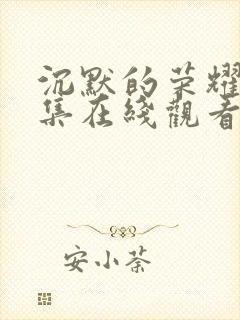 沉默的荣耀
集在綫觀看
安小茶